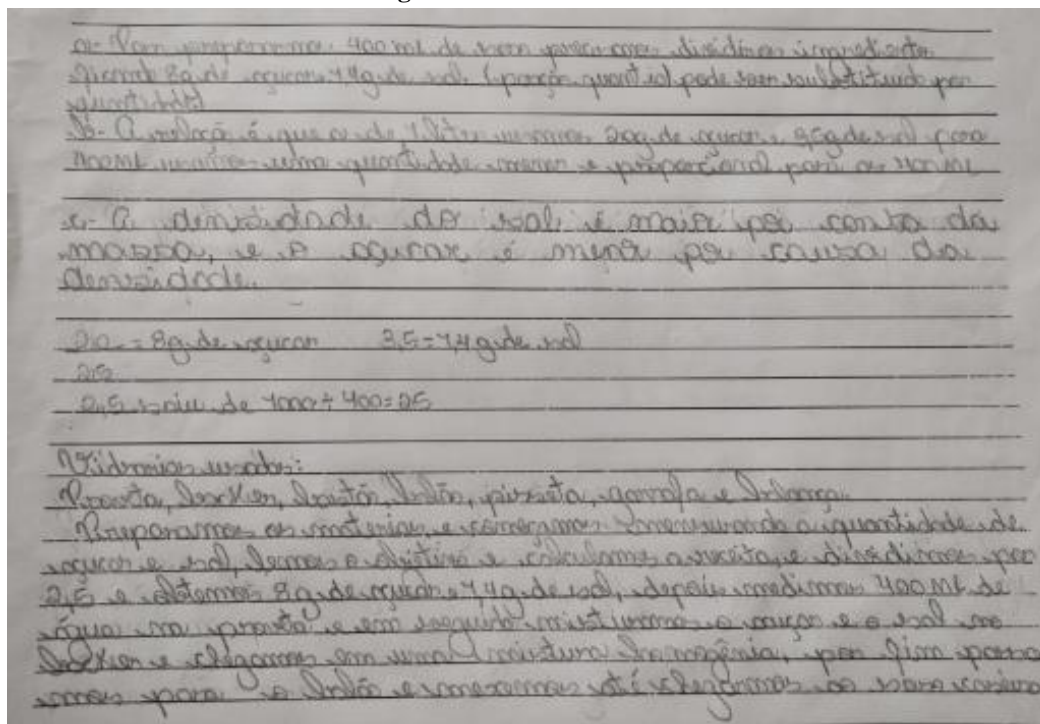 a- Para prepararmos 400 ml de soro precisamos dividimos ingredientes
ficando 8g de açucar e 1,4g de sal. (porção quant sal pode ser substituido por
quantidade)
b- A relação é que a de 1 litro usamos 20g de açucar e 3,5g de sal para
400ML usamos uma quantidade menor e proporcional para os 400ML
c- A densidade do sal é maior por conta da
massa, e o açucar é menor por causa da
densidade.
20 = 8g de açucar 3,5=1,4g de sal
2,5
2,5 saiu de 1000÷400=25
Vidrarias usadas:
Proveta, becker, bastão, balão, pisseta, garrafa e balança.
Preparamos os materiais, e começamos mensurando a quantidade de
açucar e sal, lemos o objetivo e calculamos a receita, e dividimos por
2,5 e obtemos 8g de açucar e 1,4g de sal, depois medimos 400ML de
água na proveta e em seguida misturamos o açucar e o sal no
becker e chegamos em uma mistura homogênia, por fim passa
mos para o balão e mexemos até chegarmos ao soro caseiro